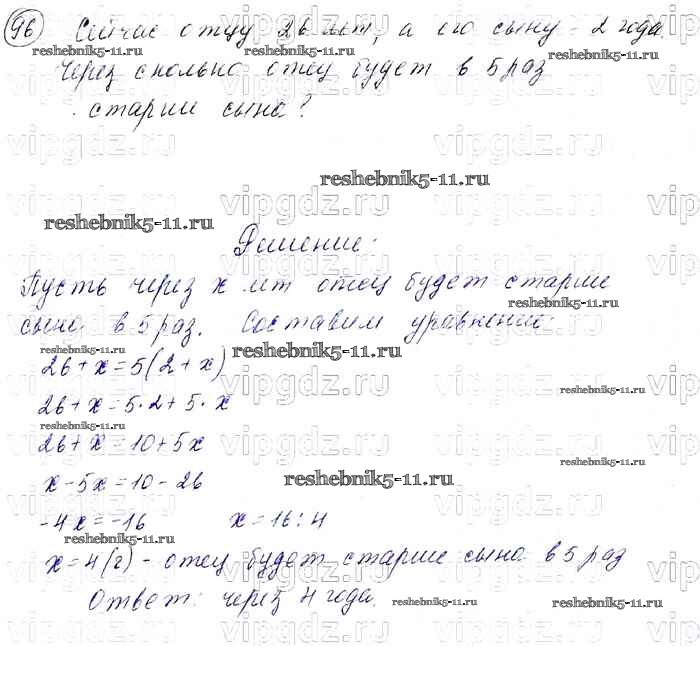 96 Сейчас отцу 26 лет, а его сыну - 2 года.
Через сколько отец будет в 5 раз
старше сына?
Решение:
Пусть через x лет отец будет старше
сына в 5 раз. Составим уравнение:
26+x=5(2+x)
26+x=5·2+5·x
26+x=10+5x
x-5x=10-26
-4x=-16 x=16:4
x=4(г) - отец будет старше сына в 5 раз
Ответ: через 4 года.
vipgdz.ru
reshebnik5-11.ru